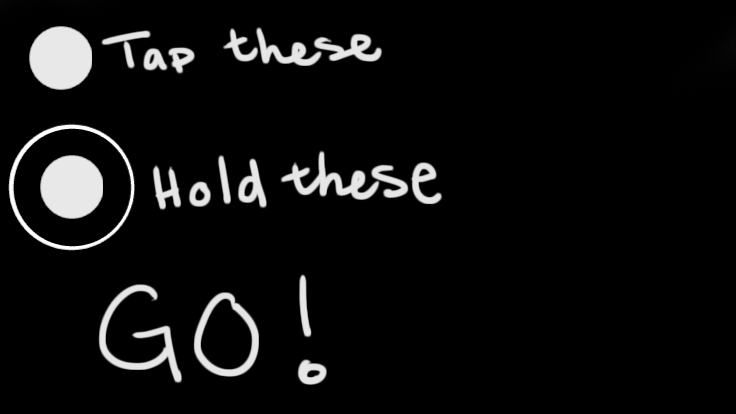 Tap these
Hold these
GO!